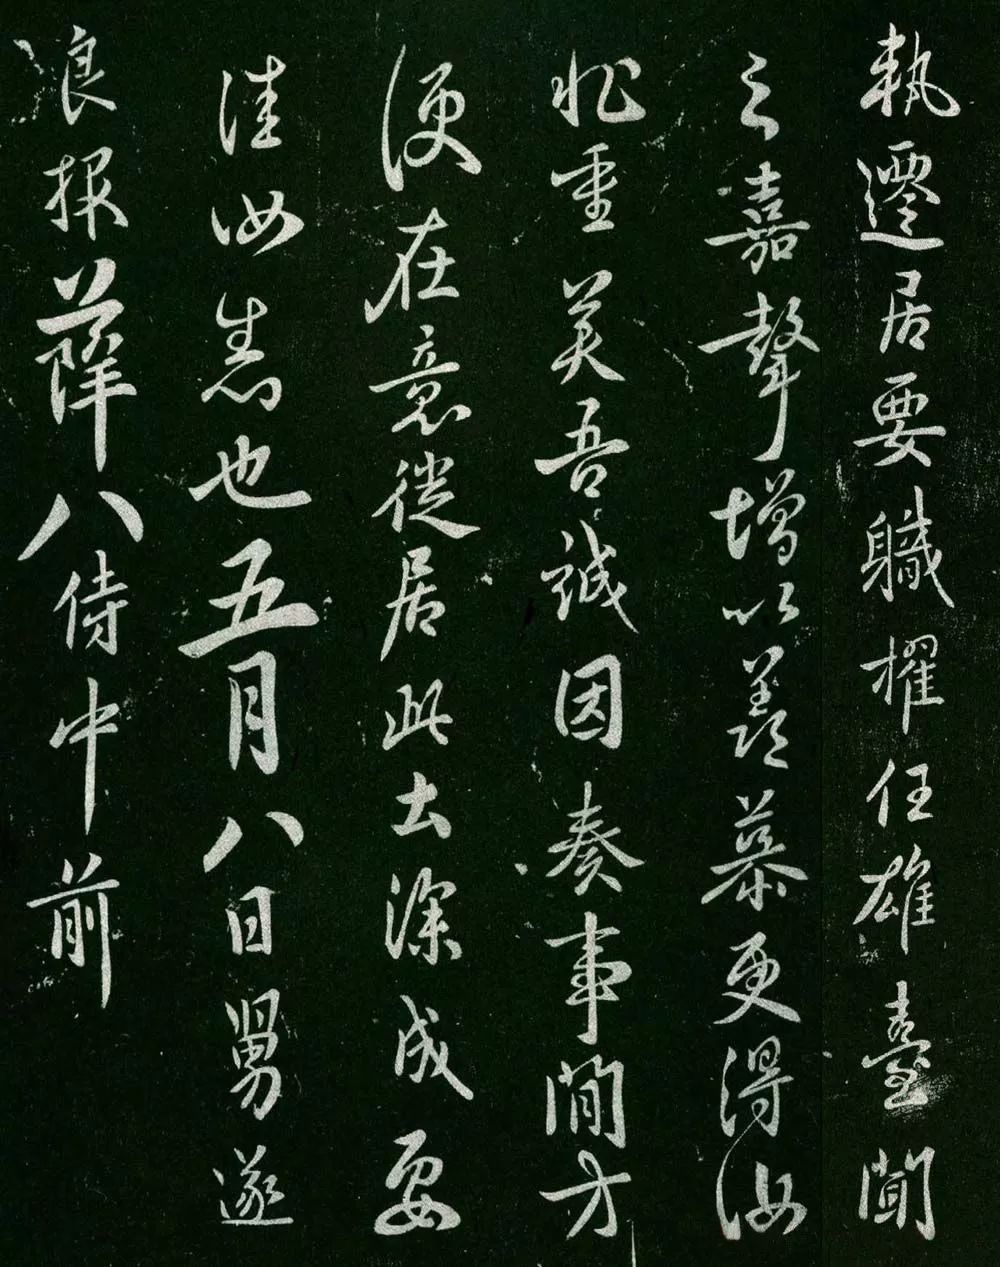 執遷居要職擢任雄臺聞
之嘉聲增以羨慕更得汝
非重美吾誠因奏事簡方
便在意從居此去深成要
佳汝悉也五月八日舅遂
良報薛八侍中前